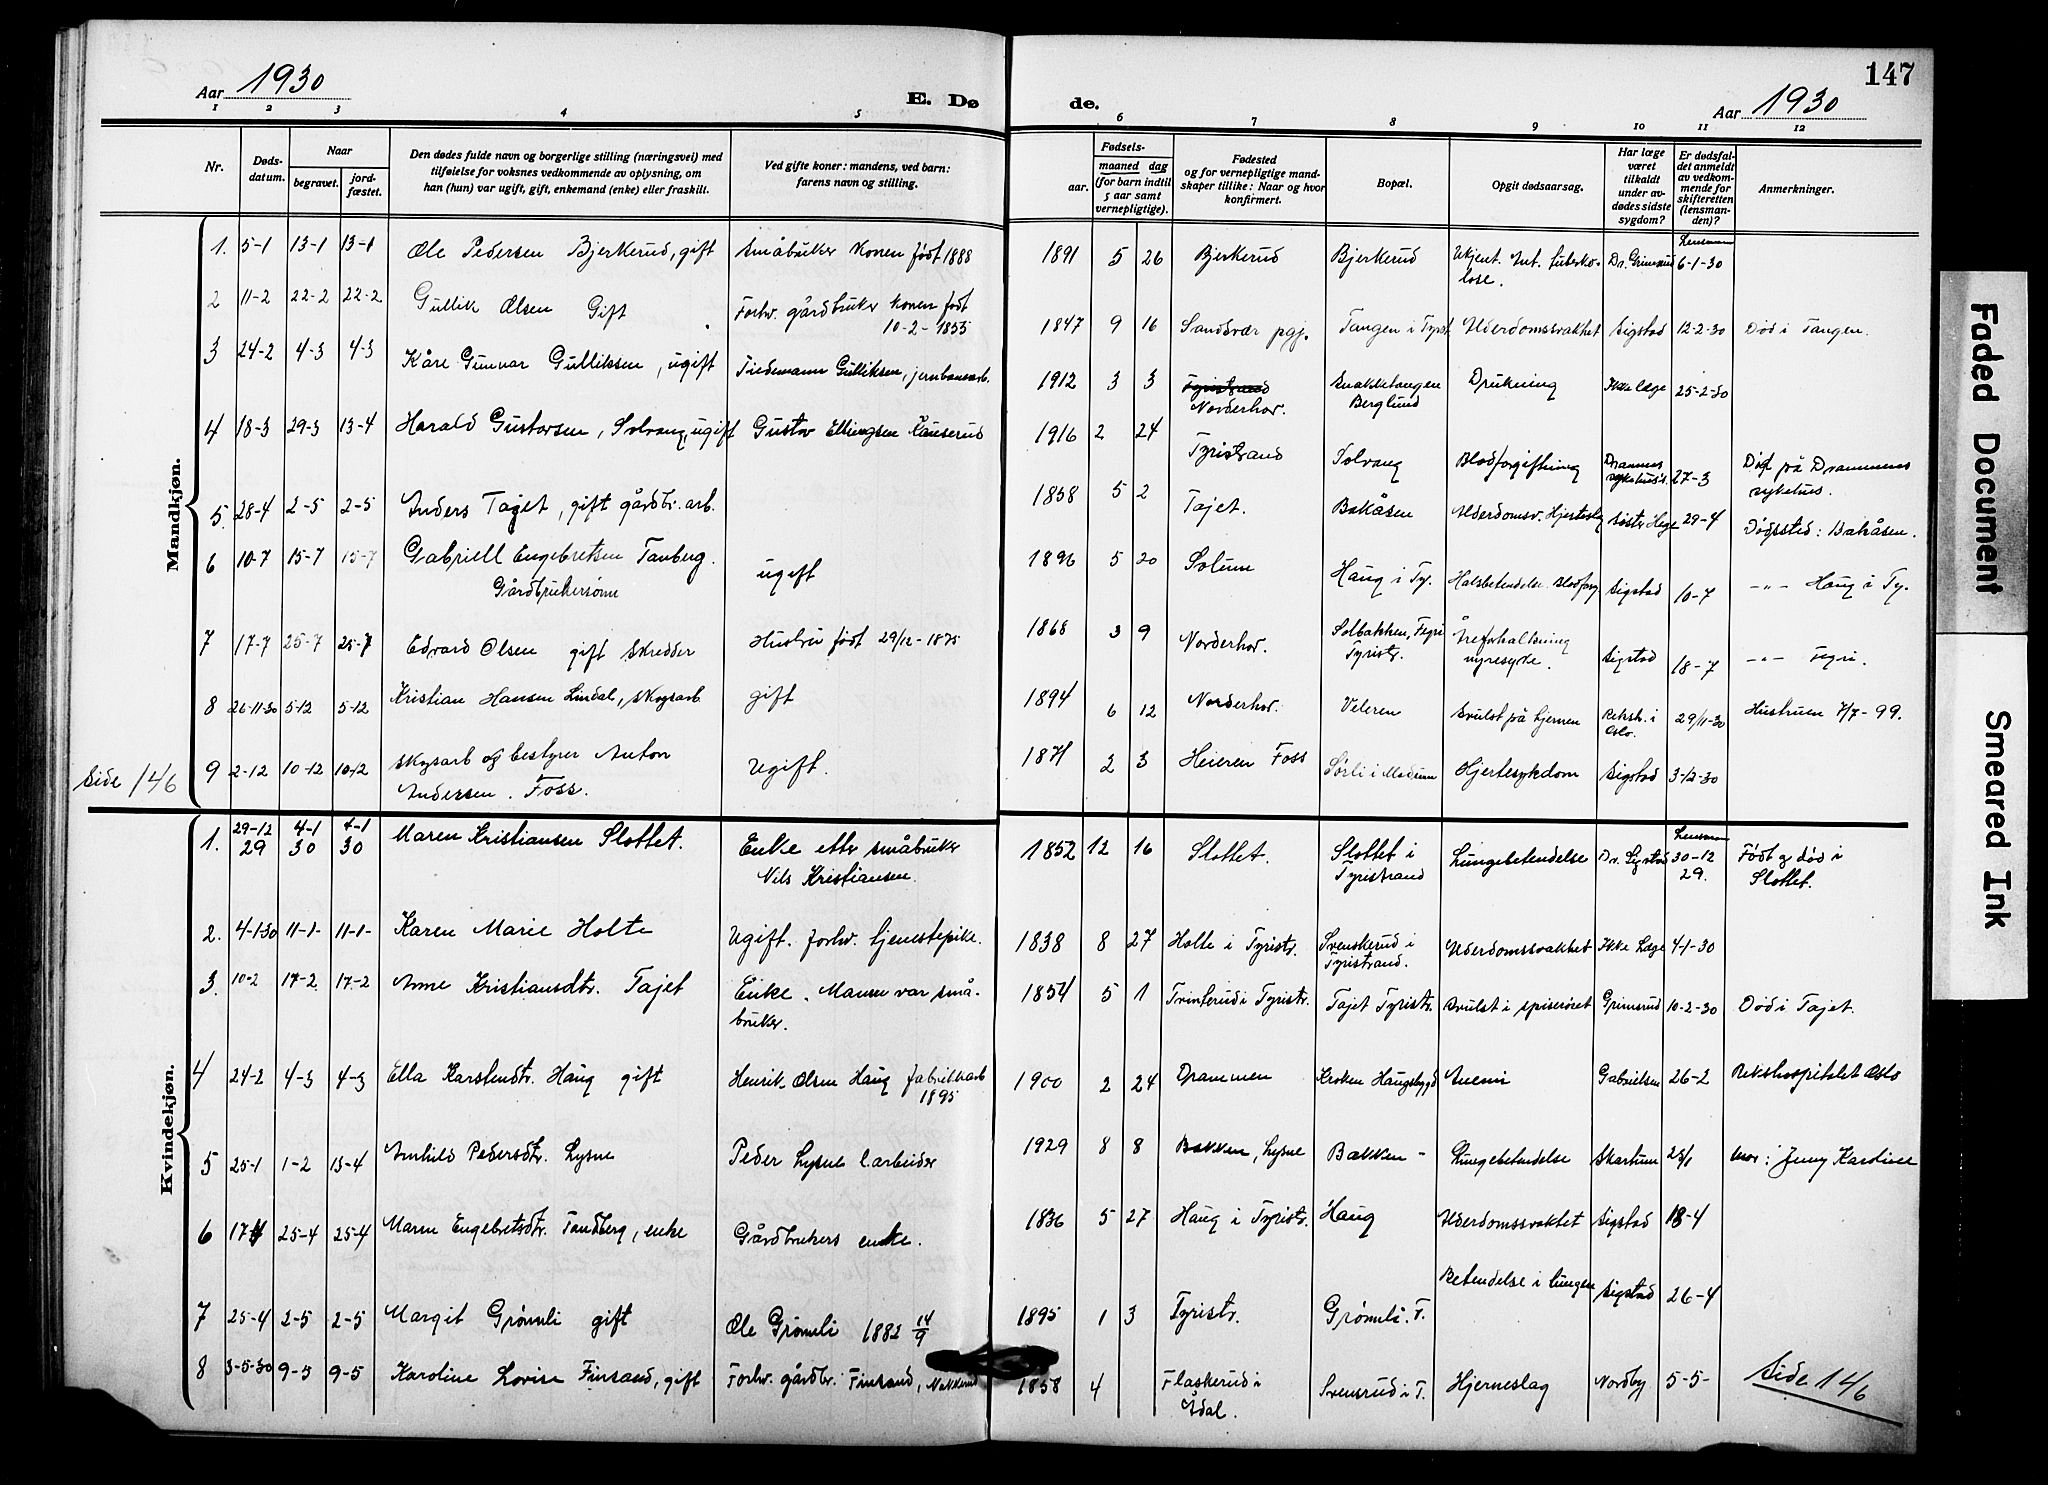 147
Aar 1930
E. Dø
de.
Aar 1930
1 2 3 4 5 6 7 8 9 10 11 12
Nr.
Døds-
datum.
Naar
begravet.
jord-
fæstet.
Den dødes fulde navn og borgerlige stilling (næringsvei) med
tilføielse for voksnes vedkommende av oplysning, om
han (hun) var ugift, gift, enkemand (enke) eller fraskilt.
Ved gifte koner: mandens, ved barn:
farens navn og stilling.
Fødsels-
aar.
maaned dag
(for barn indtil
5 aar samt
vernepligtige).
Fødested
og for vernepligtige mand-
skaper tillike: Naar og hvor
konfirmert.
Bopæl.
Opgit dødsaarsag.
Har læge
været
tilkaldt
under av-
dødes sidste
sygdom?
Er dødsfal-
det anmeldt
av vedkom-
mende for
skifteretten
(lensman-
den)?
Anmerkninger.
Mandkjøn.
Lensman
1. 5-1 13-1 13-1 Ole Pedersen Bjerkerud, gift Småbruker Konen født 1888 1891 5 26 Bjerkerud Bjerkerud Ukjent. Int. tuberko-
lose. Dr. Grimsrud 6-1-30
2 11-2 22-2 22-2 Gullik Olsen Gift Forhv. gårdbruker Konen født
10-2-1855 1847 9 16 Sandsvær pgj. Tangen i Tyrist. Alderdomssvakhet Sigstad 12-2-30 Død i Tangen.
3 24-2 4-3 4-3 Kåre Gunnar Gulliksen, ugift Tiedemann Gulliksen, jernbanearb. 1912 3 3 Tyristrand
Norderhov. Snakketangen
Berglund Drukning Ikke læge 25-2-30
4 18-3 29-3 13-4 Harald Gustavsen, Solvang, ugift Gustav Ellingsen 1916 2 24 Tyristrand Solvang Blodforgiftning Drammens
sykehus 27-3 Død på Drammens
sykehus.
5. 28-4 2-5 2-5 Anders Tajet, gift gårdbr. arb. 1858 5 2 Tajet. Bakåsen Alderdomsv. Hjerteslag Søster Hege 29-4 Dødssted: Bakåsen.
6 10-7 15-7 15-7 Gabriell Engebretsen Tanberg.
Gårdbrukersønn ugift 1896 5 20 Solum Haug i Ty. Halsbetendelse Blodforg. Sigstad 10-7 -"- Haug i Ty.
7 17-7 25-7 25-7 Edvard Olsen gift Skredder Hustru født 29/12-1875 1868 3 9 Norderhov. Solbakken, Fegri
Tyristr. Åreforkalkning
nyresyke. Sigstad 18-7 -"- Fegri.
8 26-11-30 5-12 5-12 Kristian Hansen Lindal, skogsarb gift 1894 6 12 Norderhov. Veleren Svulst på hjernen Riksh. i
Oslo. 29/11-30 Hustruen 7/7-99.
9 2-12 10-12 10-12 Skogsarb og bestyrer Anton
Andersen. Foss. Ugift. 1871 2 3 Heieren Foss Sørli i Modum Hjertesykdom Sigstad 3-12-30
Side 146
Kvindekjøn.
Lensman
1. 29-12
29 4-1
30 4-1
30 Maren Kristiansen Slottet. Enke etter småbruker
Nils Kristiansen. 1852 12 16 Slottet. Slottet i
Tyristrand Lungebetendelse Dr. Sigstad 30-12
29. Født og død i
Slottet.
2. 4-1-30 11-1- 11-1- Karen Marie Holte Ugift. forhv. tjenestepike. 1838 8 27 Holte i Tyristr. Svenskerud i
Tyristrand. Alderdomssvakhet Ikke Læge 4-1-30
3. 10-2 17-2. 17-2 Anne Kristiansdtr. Tajet Enke. Mannen var små-
bruker. 1854 5 1 Tvinterud i Tyristr. Tajet Tyristr. Svulst i spiserøret Grimsrud 10-2-30 Død i Tajet.
4 24-2 4-3 4-3 Ella Karstendtr. Haug gift Henrik Olsen Haug fabrikkarb
1895 1900 2 24 Drammen Kroken Haugsbygd Anemi Gabrielsen 26-2 Rikshospitalet Oslo
5 25-1 1-2 13-4 Arnhild Pedersdtr. Lysne Peder Lysne l. arbeider 1929 8 8 Bakken, Lysne Bakken - Lungebetendelse Skartum 25/1 Mor: Jenny Karoline
6 17-4 25-4 25-4 Maren Engebretsdtr. Tandberg, enke Gårdbrukers enke. 1836 5 27 Haug i Tyristr. Haug Alderdomssvakhet Sigstad 18-4
7 25-4 2-5 2-5 Margit Grømli gift Ole Grømli 1882 14/9 1895 1 3 Tyristr. Grømli. T. Betendelse i lungen Sigstad 26-4
8 3-5-30 9-5 9-5 Karoline Lovise Finsand, gift Forhv. gårdbr. Finsand, Nakkerud 1858 4 Flaskerud i
Ådal. Svensrud i T. Hjerneslag Nordby 5-5-
Side 146
Faded Document
Smeared Ink